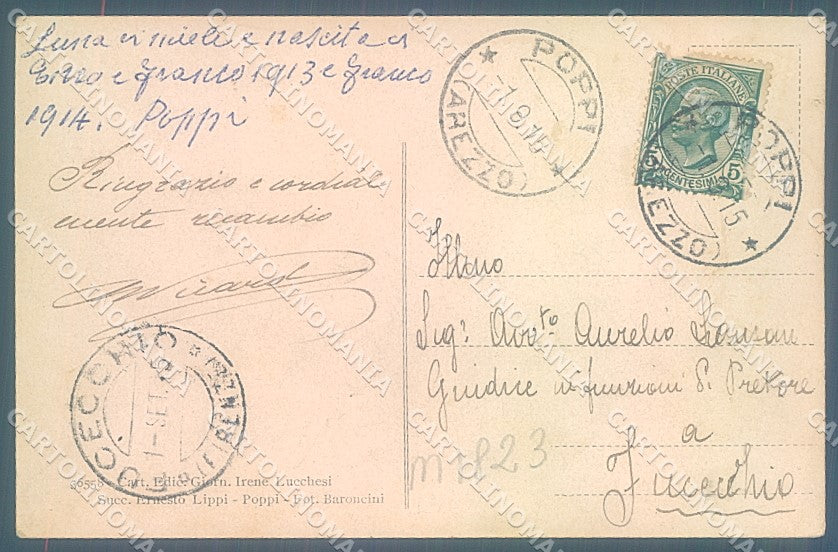 Luna di miele e nascita di
Enzo e Franco 1913 e Franco
1914. Poppi
Ringrazio e cordial
mente ricambio
POPPI
(AREZZO)
POSTE ITALIANE
5 5
CENTESIMI
POPPI
(AREZZO)
15
Ill.mo
Sig: Avv.to Aurelio
Giudice in funzioni di Pretore
a
Fucecchio
FUCECCHIO
(FIRENZE)
1-SET
m 823
36558 - Cart. Ediz. Giorn. Irene Lucchesi
Succ. Ernesto Lippi - Poppi - Fot. Baroncini
CARTOLINOMANIA